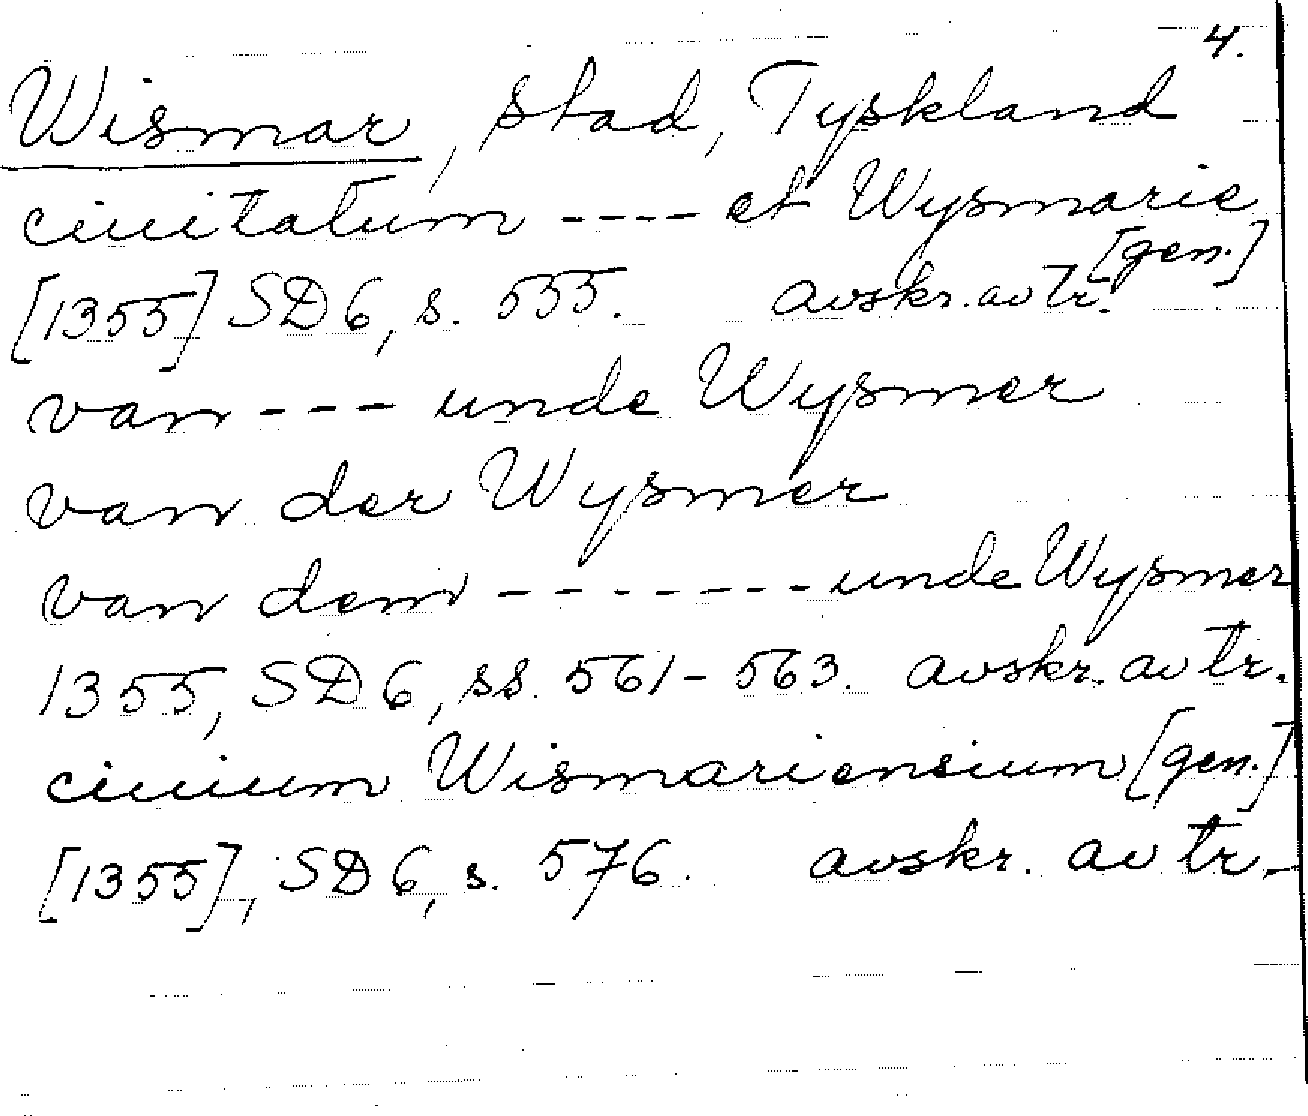 4.
Wismar, stad, Tyskland
ciuitatum ---- et Wysmarie
[gen.]
[1355] SD 6, s. 555. avskr. av tr.
van --- unde Wysmer
van der Wysmer
van dem ------- unde Wysmer
1355, SD 6, ss. 561-563. avskr. av tr.
ciuium Wismariensium [gen.]
[1355], SD 6, s. 576. avskr. av tr.